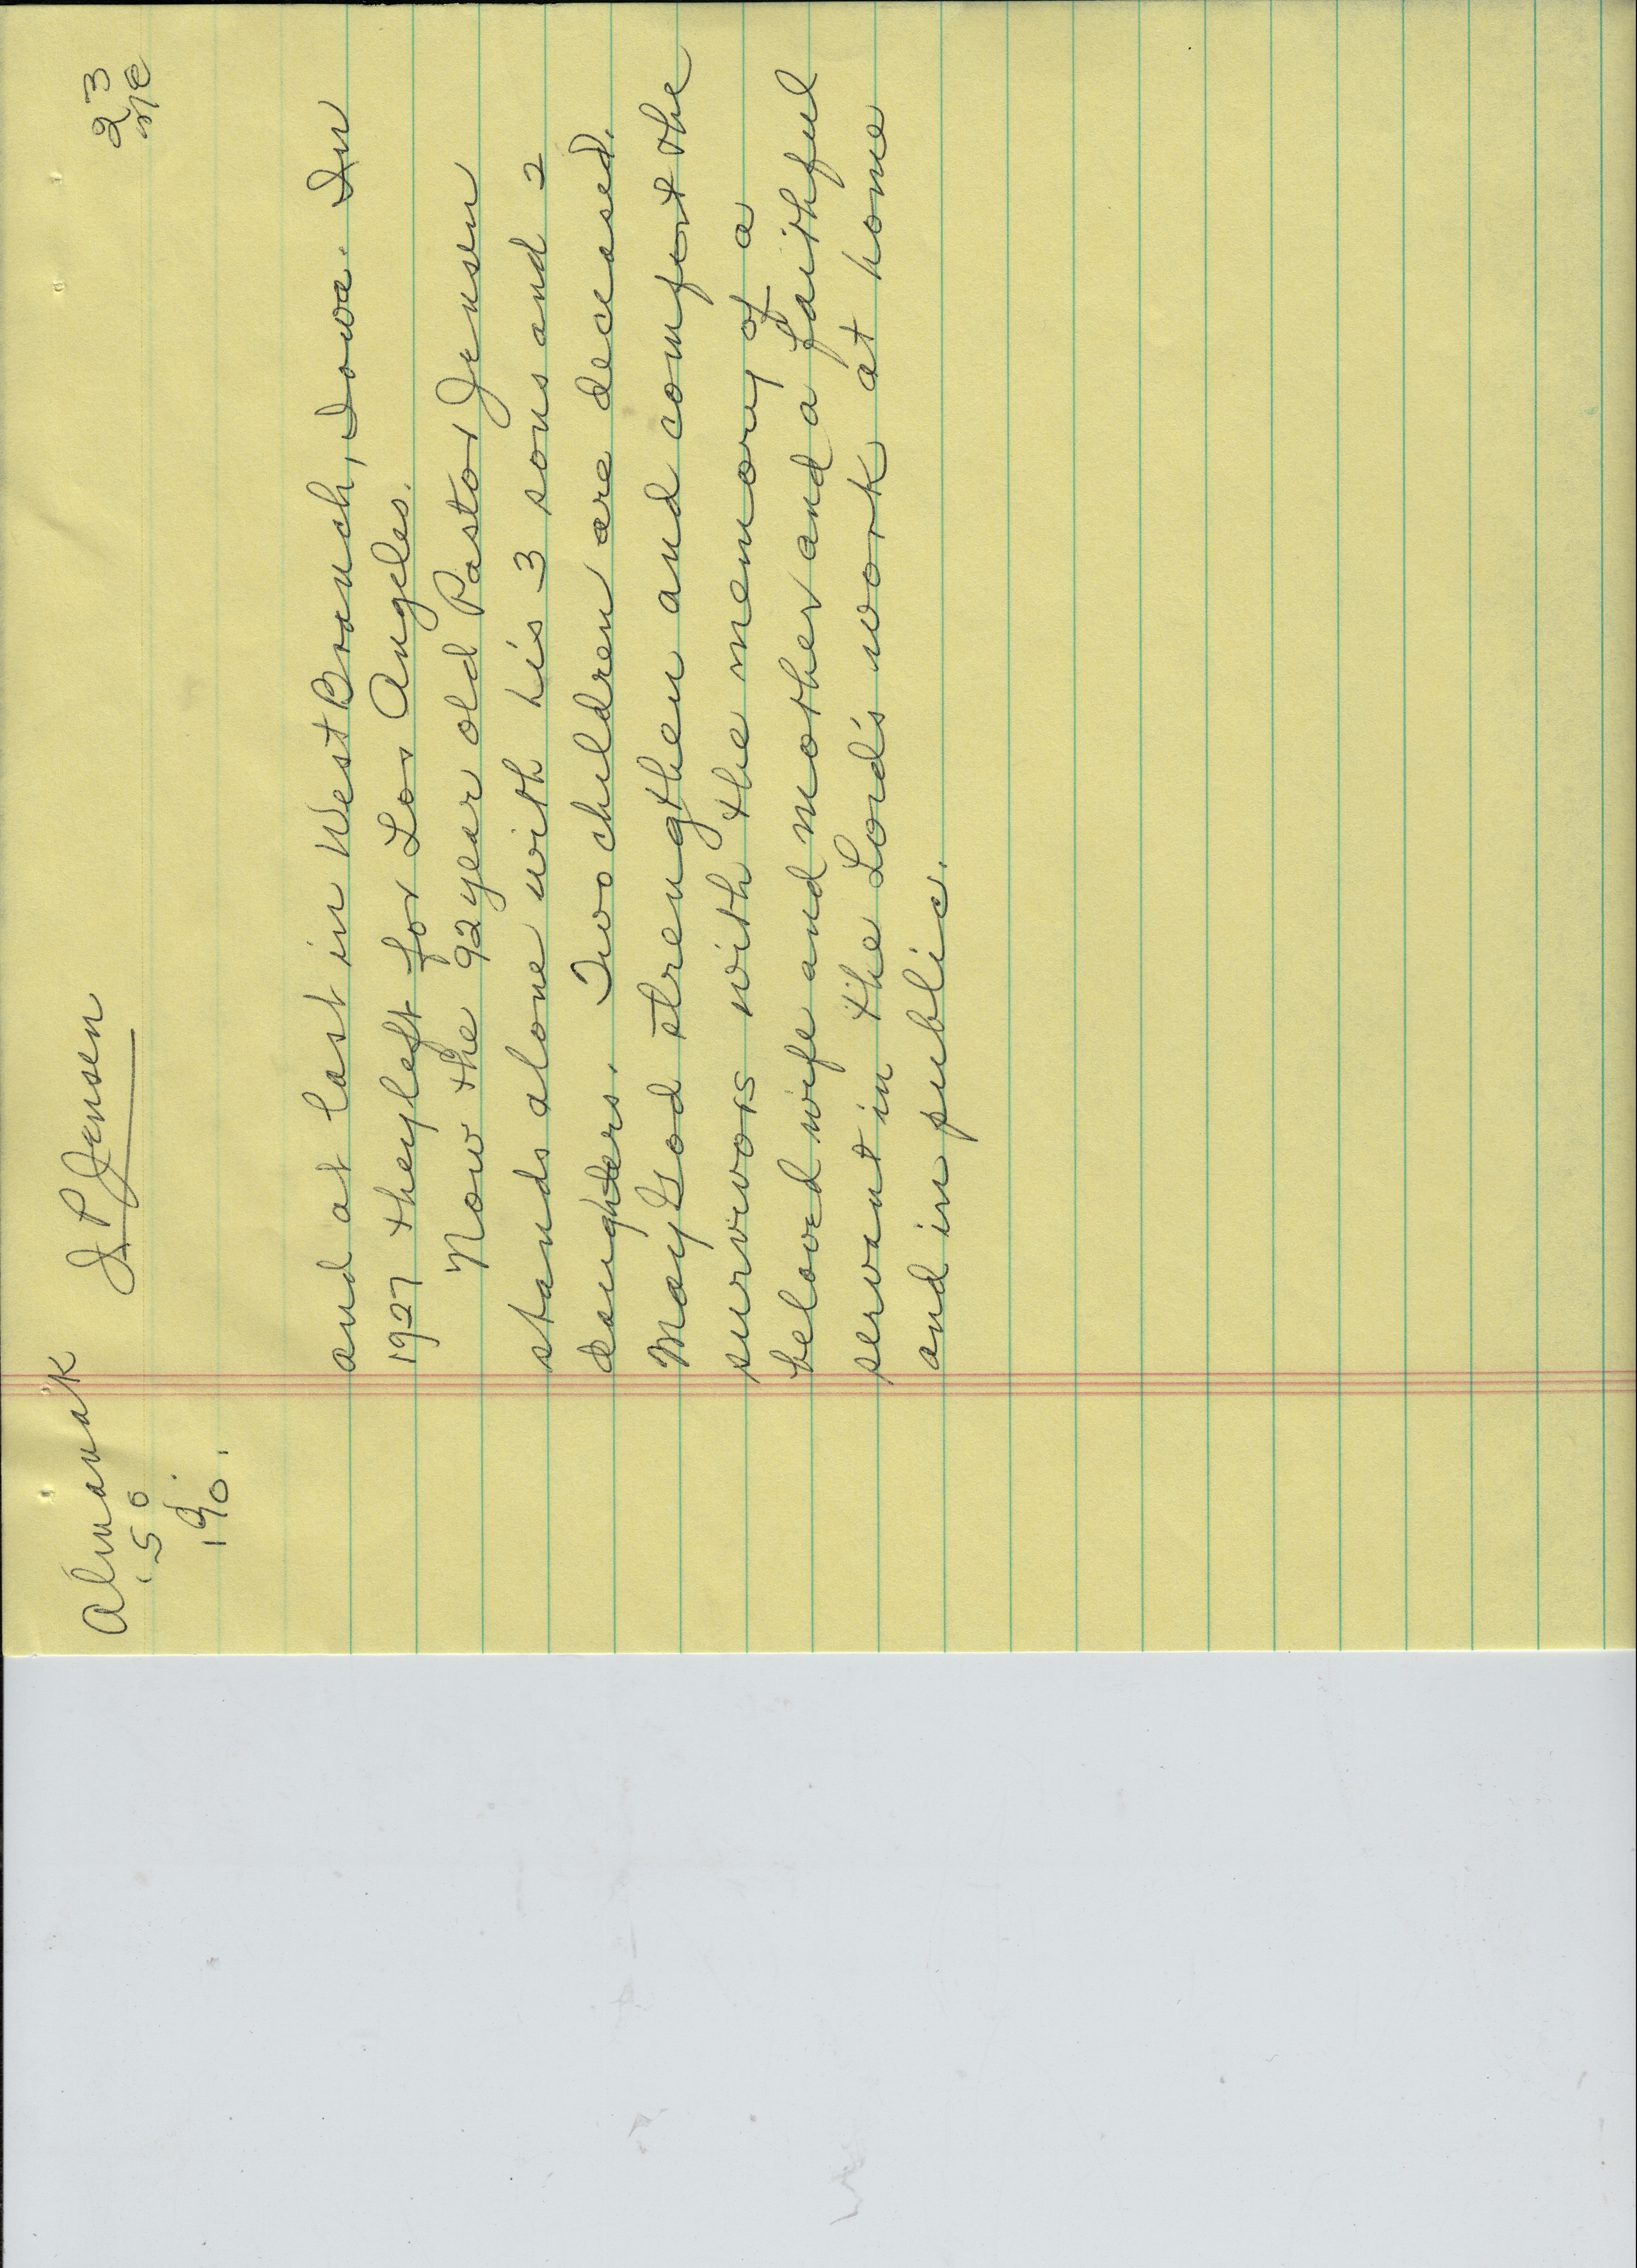 Almanak J. P. Jensen 23
'50.
190.
and at last in West Branch, Iowa. In
1927 they left for Los Angeles.
Now the 92 year old Pastor Jensen
stands alone with his 3 sons and 2
daughters. Two children are deceased.
May God strengthen and comfort the
survivors with the memory of a
beloved wife and mother and a faithful
servant in the Lord's work at home
and in public.